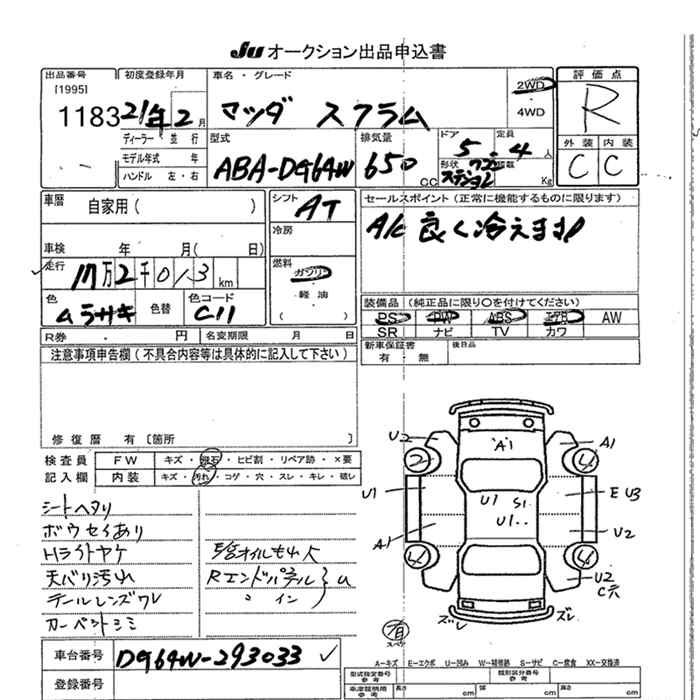 JU オークション出品申込書
出品番号 初度登録年月 車名・グレード 2WD 評価点
[1995]
1183 21年2月 マツダ スクラム 4WD R
ディーラー・並行 型式 排気量 ドア 定員 外装 内装
モデル年式 年 ABA-DG64W 650 CC 5 4人 C C
ハンドル 左・右 形状 積載 Kg
車歴 自家用( ) シフト AT セールスポイント(正常に機能するものに限ります)
冷房 A/C 良く冷えます
車検 年 月( 日)
走行 万2千013km 燃料 ガソリン
軽油
( )
色 ムラサキ 色替 色コード C11 装備品(純正品に限り○を付けてください)
PS PW ABS エアB AW
SR ナビ TV カワ
R券 円 名変期限 月 日 新車保証書 後日品
有・無
注意事項申告欄(不具合内容等は具体的に記入して下さい)
修復歴 有〔箇所 〕
検査員 FW キズ・飛石・ヒビ割・リペア跡・×要
記入欄 内装 キズ・汚れ・コゲ・穴・スレ・キレ・破レ
シートヘタリ
ボウセイあり
Hライトヤケ
天バリ汚れ Rエンドパネル
テールレンズワレ 〃 イン
カーペットシミ
U2 A1 A1
2 4
U1 U1 S1 E U3
U1
A1 U2
4 4
U2
C穴
ズレ ズレ
有
スペア
車台番号 DG64W-293033
登録番号
A-キズ E-エクボ U-凹み W-補修跡 S-サビ C-腐食 XX-交換済
型式指定番号 類別区分番号
長さ cm 幅 cm 高さ cm